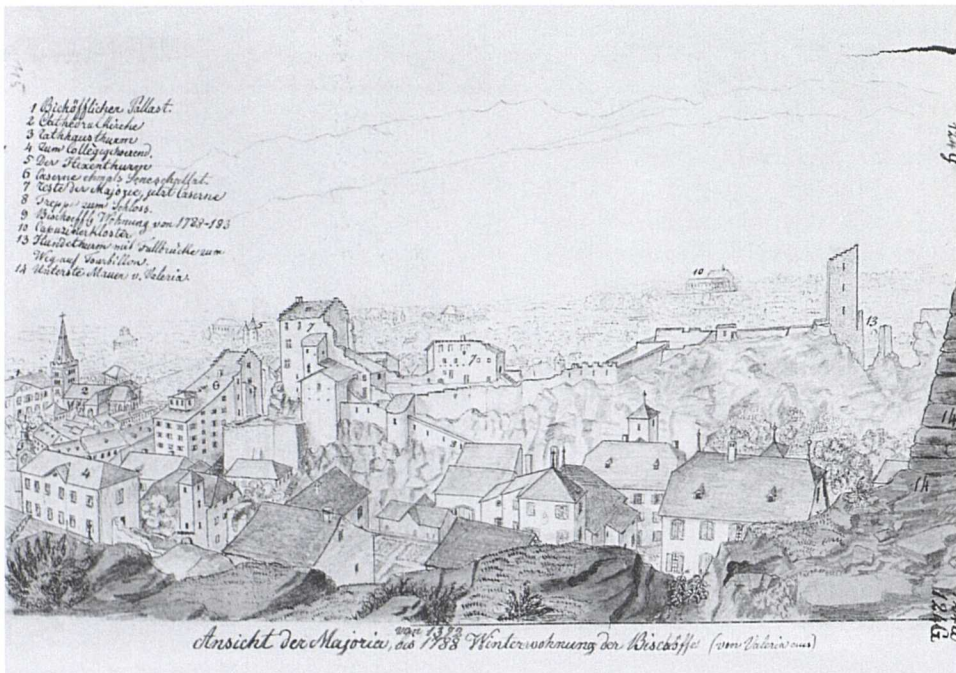 1 Bischöfflicher Pallast.
2 Cathedralkirche
3 Rathhausthurm
4 Zum Collège gehörend.
5 Der Hexenthurm
6 Caserne ehmals Seneschallat.
7 Reste der Majorie, jetzt Caserne
8 Treppe zum Schloss.
9 Bischöffl. Wohnung von 1788-183
10 Capuzinerkloster
13 Hundethurm mit Fallbrücke zum
Weg auf Tourbillon.
14 Unterste Mauer v. Valeria.
10
13
7
7
6
2
4
14
14
von 1373
Ansicht der Majoria, bis 1788 Winterwohnung der Bischöffe (von Valeria aus)